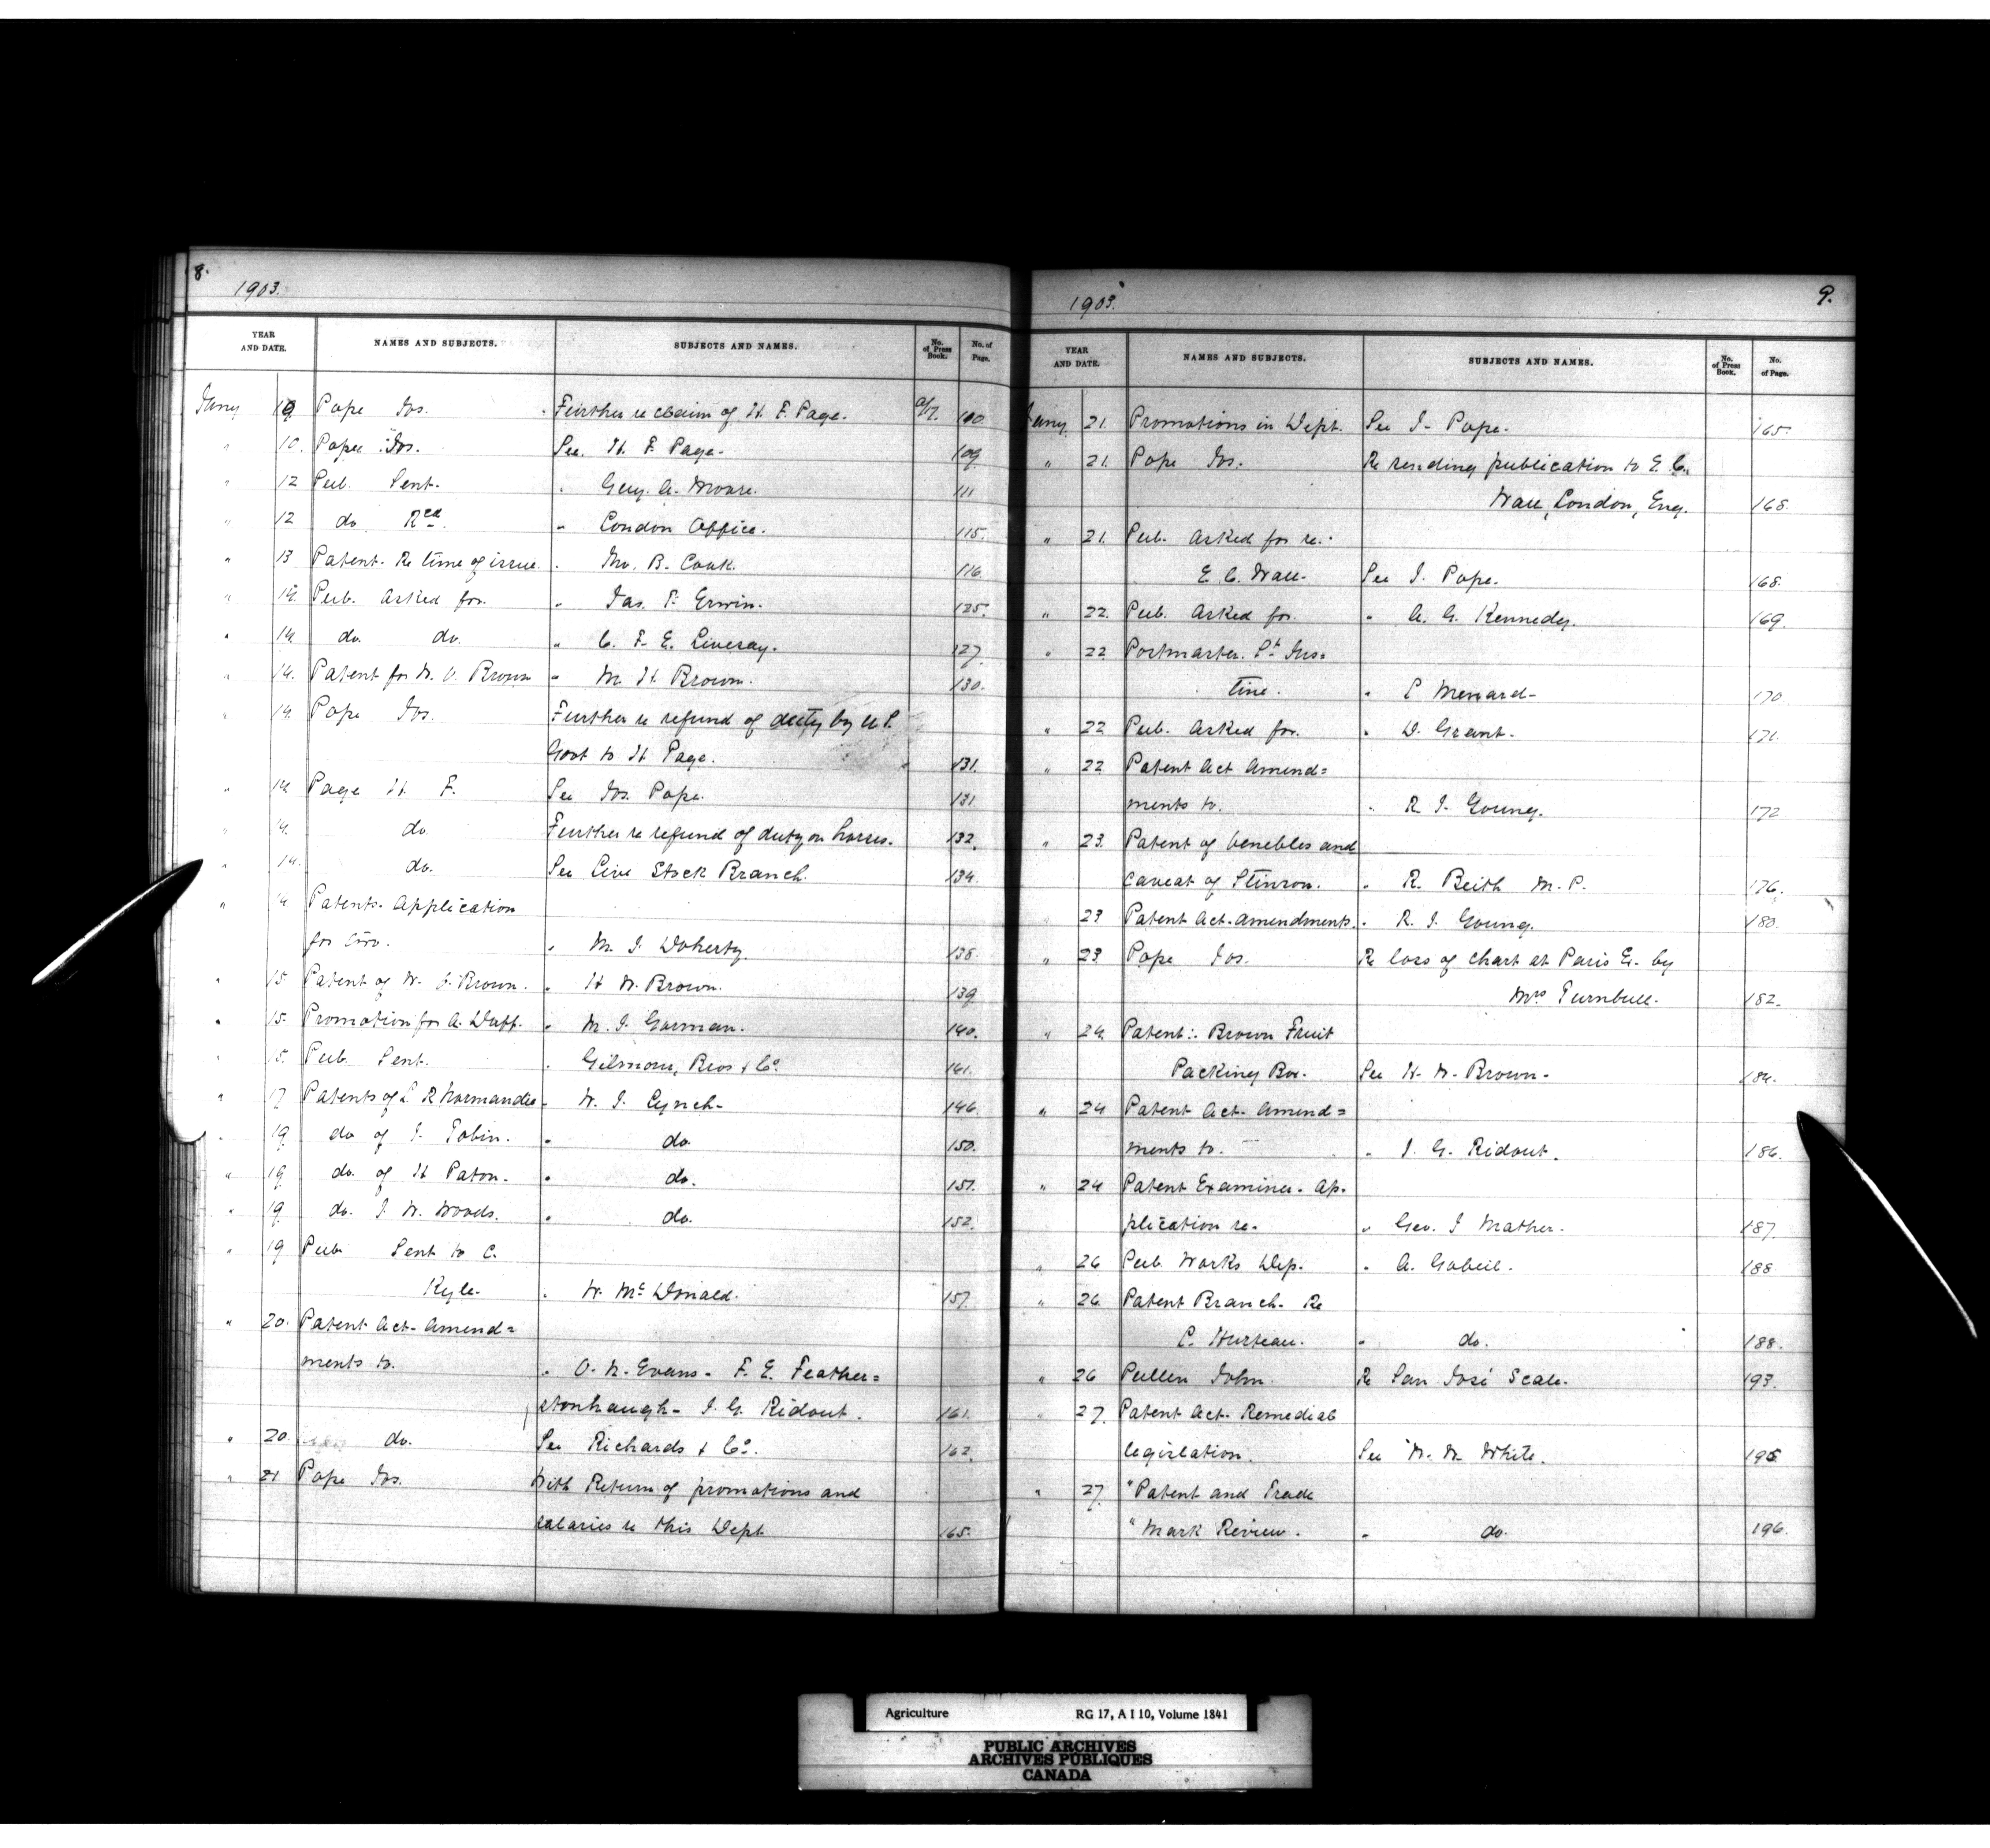 8.
1903.
YEAR AND DATE. NAMES AND SUBJECTS. SUBJECTS AND NAMES. No. of Press Book. No. of Page.
Jany 10 Pope Jos. Further re claim of H. F. Page. 100
" 10. Pope Jos. See H. F. Page. 109
" 12 Pub. Sent. " Geug. A. Moore. 111
" 12 do Rec'd. " London Office. 115.
" 13 Patent. Re time of issue. " Mr. B. Cook. 116.
" 14. Pub. Asked for. " Jas. F. Erwin. 125.
" 14. do do. " C. F. E. Livesay. 127.
" 14. Patent for W. O. Brown " M. H. Brown. 130.
" 14. Pope Jos. Further re refund of duty by U S.
Govt to H Page. 131.
" 14 Page H. F. See Jos. Pope. 131.
" 14. do. Further re refund of duty on horses. 132.
" 14. do. See Live Stock Branch. 134.
" 14 Patents. Application
for two. " M. J. Doherty. 138.
" 15 Patent of W. J. Brown. " H W. Brown. 139
" 15. Promotion for A. Duff. " M. J. Gorman. 140.
" 15. Pub. Sent. " Gilmour, Bros & Co. 141.
" 17 Patents of L R Normandie " W. J. Lynch. 146.
" 19. do of J. Tobin. " do. 150.
" 19. do. of H Paton. " do. 151.
" 19. do. J. W. Woods. " do. 152.
" 19 Pub. Sent to C.
Kyle. " W. McDonald. 157.
" 20. Patent Act. Amend=
ments to. " O. N. Evans. F. E. Feather=
stonhaugh. J. G. Ridout. 161.
" 20. do. See Richards & Co. 162.
" 21 Pope Jos. With Return of promotions and
salaries re this Dept 165.
1903. 9.
YEAR AND DATE. NAMES AND SUBJECTS. SUBJECTS AND NAMES. No. of Press Book. No. of Page.
Jany 21. Promotions in Dept. See J. Pope. 165.
" 21. Pope Jos. Re sending publication to E. C.
Wall, London, Eng. 168.
" 21. Pub. Asked for re.
E. C. Wall. See J. Pope. 168.
" 22. Pub. Asked for. " A. G. Kennedy. 169.
" 22 Postmaster. St Jus=
tine. " L Menard. 170
" 22 Pub. Asked for. " D. Grant. 171.
" 22 Patent Act Amend=
ments to. " R. J. Young. 172
" 23. Patent of Venebles and
Caveat of Stinson. " R. Beith M. P. 176.
23 Patent Act. Amendments. " R. J. Young. 180.
" 23 Pope Jos. Re loss of chart at Paris Ex. by
Mrs Turnbull. 182.
" 24. Patent:- Brown Fruit
Packing Box. See H. W. Brown. 184.
" 24 Patent Act. Amend=
ments to. " J. G. Ridout. 186.
" 24 Patent Examiner. Ap=
plication re. " Geo. J Mather. 187.
" 26 Pub. Works Dep. " A. Gobeil. 188
" 26. Patent Branch. Re
C. Hurteau. " do. 188.
" 26 Pullen John. Re San José Scale. 193.
" 27. Patent Act. Remedial
legislation. See W. W. White. 195
" 27. "Patent and Trade
"Mark Review. " do. 196.
Agriculture RG 17, A I 10, Volume 1841
PUBLIC ARCHIVES
ARCHIVES PUBLIQUES
CANADA